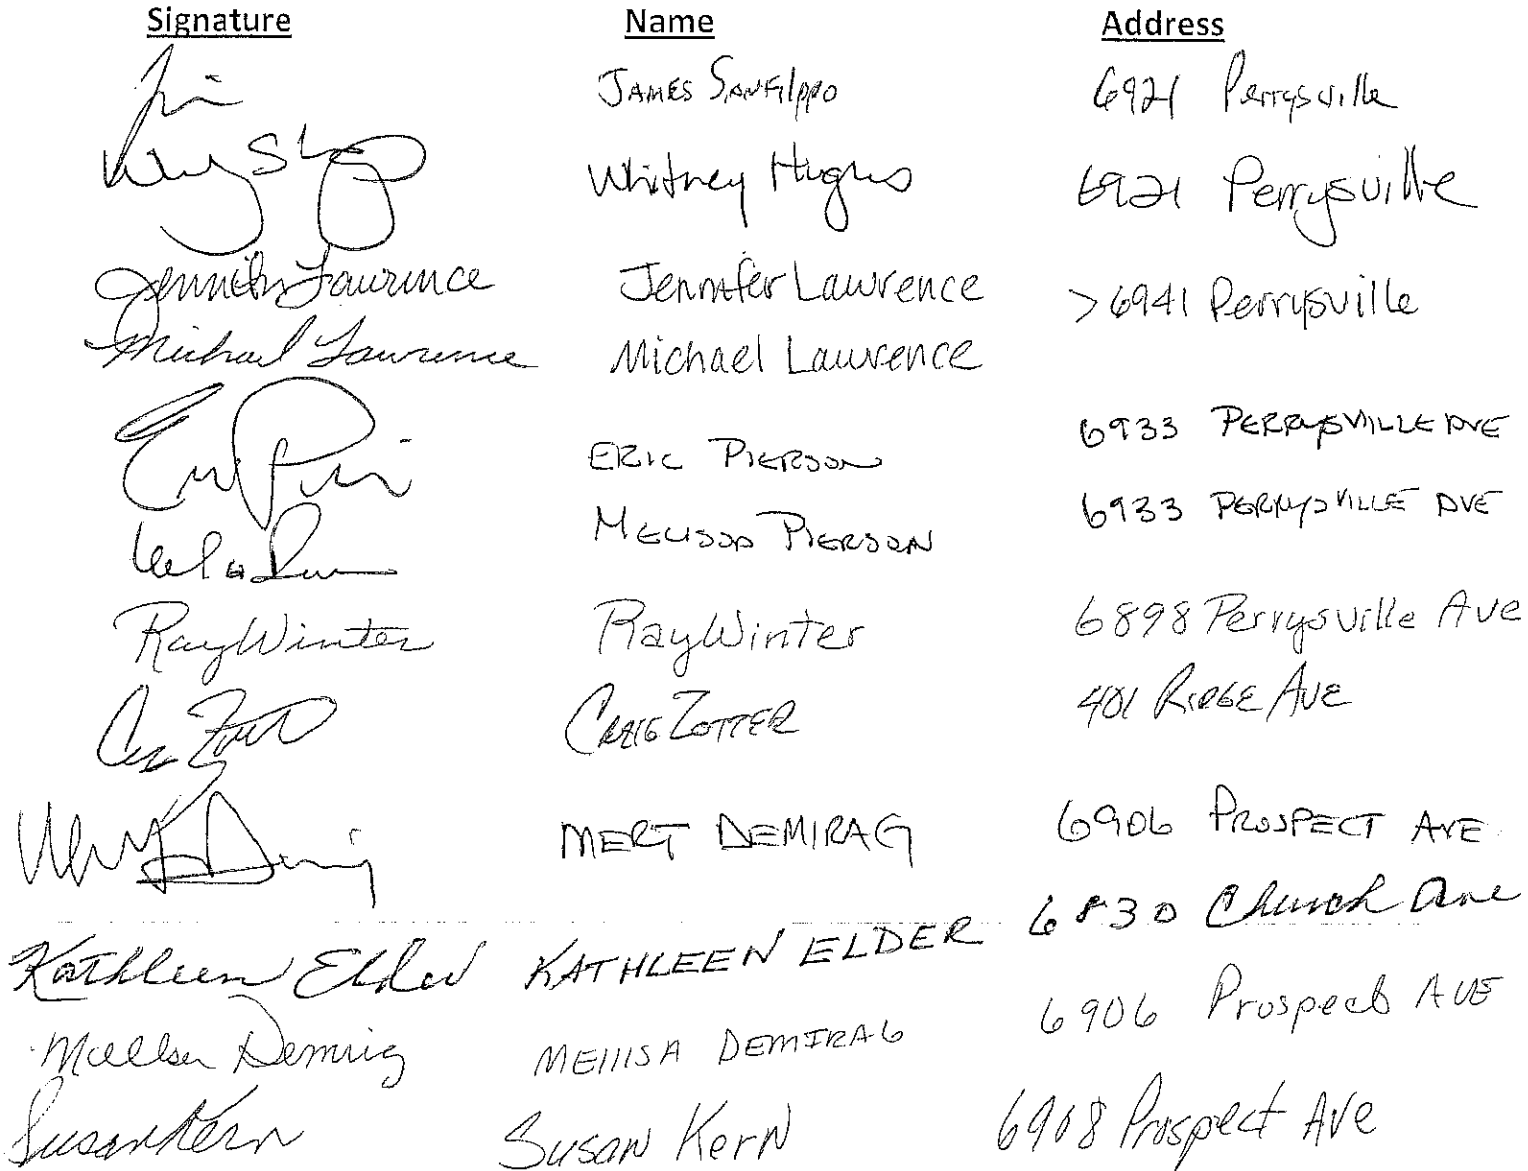 Signature Name Address
Jim James Sanfilppo 6921 Perrysville
Whitney Hughs 6921 Perrysville
Jennifer Lawrence Jennifer Lawrence >6941 Perrysville
Michael Lawrence Michael Lawrence
ERIC PIERSON 6933 PERRYSVILLE AVE
MELISSA PIERSON 6933 PERRYSVILLE AVE
Ray Winter Ray Winter 6898 Perrysville Ave
CRAIG ZOTTER 401 RIDGE AVE
MERT DEMIRAG 6906 PROSPECT AVE
Kathleen Elder KATHLEEN ELDER 6830 Church Ave
Mellisa Demirag MEllISA DEMIRAG 6906 Prospect AVE
Susan Kern Susan Kern 6908 Prospect Ave